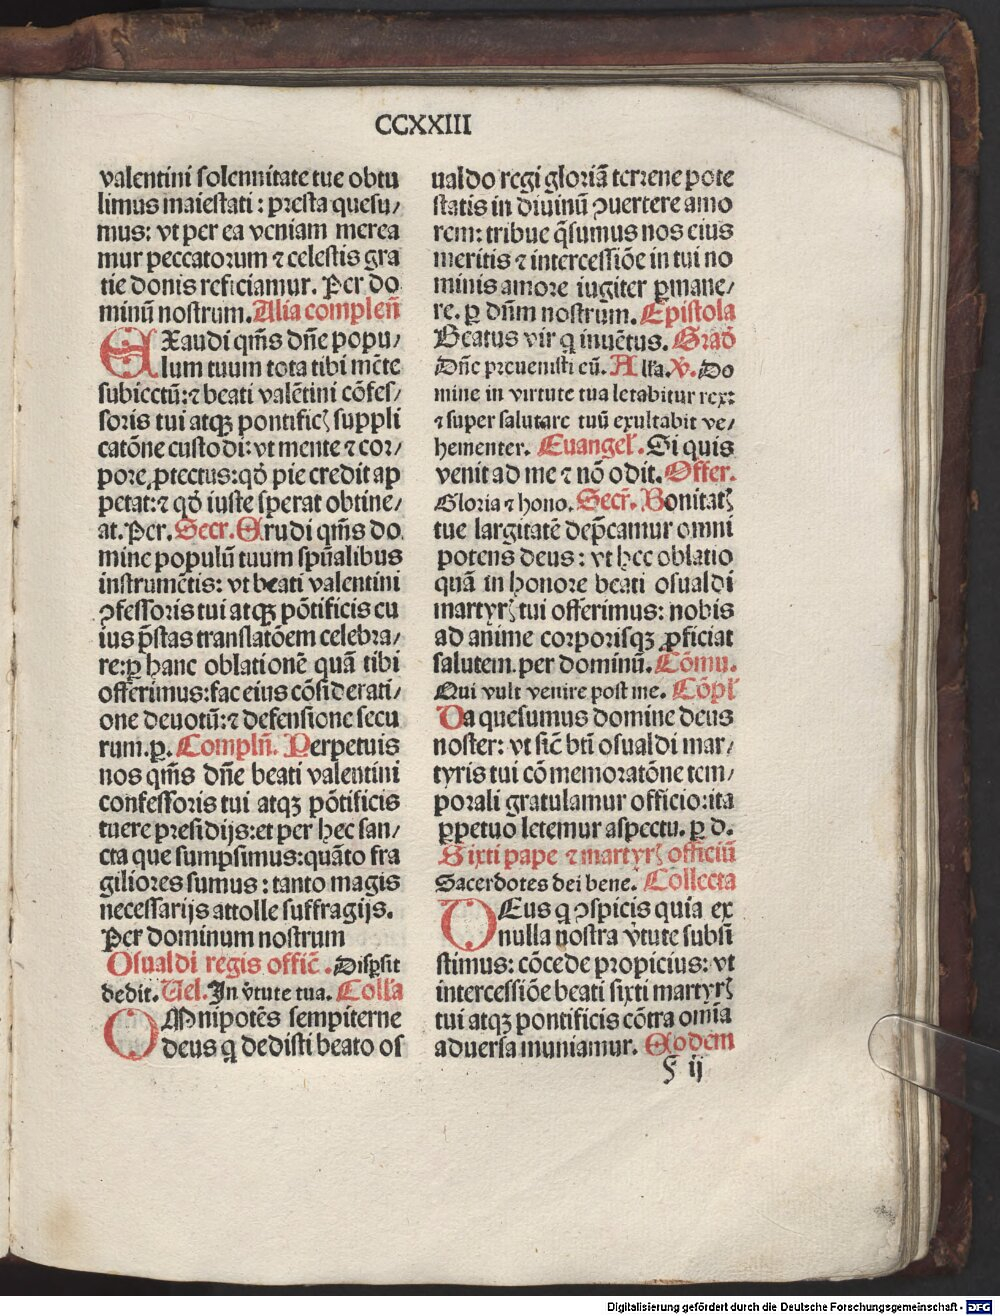 CCXXIII
valentini solennitate tue obtu
limus maiestati : presta quesu/
mus: vt per ea veniam merea
mur peccatorum ⁊ celestis gra
tie donis reficiamur. Per do
minū nostrum. Alia compleñ
EXaudi qm̄s dn̄e popu/
lum tuum tota tibi mēte
subiectū:⁊ beati valētini cōfes/
soris tui atqꝫ pontificꝭ suppli
catōne custodi: vt mente ⁊ cor/
pore ꝓtectus: qd̄ pie credit ap
petat:⁊ qd̄ iuste sperat obtine/
at. Per. Secr. Erudi qm̄s do
mine populū tuum spūalibus
instrumētis: vt beati valentini
ꝯfessoris tui atqꝫ pōtificis cu
ius p̄stas translatōem celebra/
re:ꝑ hanc oblationē quā tibi
offerimus:fac eius cōsiderati/
one deuotū:⁊ defensione secu
rum.ꝑ. Complñ. Perpetuis
nos qm̄s dn̄e beati valentini
confessoris tui atqꝫ pōtificis
tuere presidijs:et per hec san/
cta que sumpsimus:quāto fra
giliores sumus : tanto magis
necessarijs attolle suffragijs.
Per dominum nostrum
Osualdi regis officī. Disꝑsit
dedit. Uel. In v̄tute tua. Coll'a
OMnipotēs sempiterne
deus q̄ dedisti beato os
ualdo regi gloriā terrene pote
statis in diuinū ꝯuertere amo
rem: tribue q̄sumus nos eius
meritis ⁊ intercessiōe in tui no
minis amore iugiter ꝑmane/
re. ꝑ dn̄m nostrum. Epistola
Beatus vir q̄ inuētus. Grad̄
Dn̄e preuenisti eū. All'a. V̄. Do
mine in virtute tua letabitur rex:
⁊ super salutare tuū exultabit ve/
hementer. Euangel'. Si quis
venit ad me ⁊ nō odit. Offer.
Gloria ⁊ hono. Secr̄. Bonitatꝭ
tue largitatē dep̄camur omni
potens deus : vt hec oblatio
quā in honore beati osualdi
martyrꝭ tui offerimus: nobis
ad anime corporisqꝫ ꝓficiat
salutem. per dominū. Cōmu.
Qui vult venire post me. Cōpl'
DA quesumus domine deus
noster: vt sic̄ bt̄i osualdi mar/
tyris tui cōmemoratōne tem/
porali gratulamur officio:ita
ꝑpetuo letemur aspectu. ꝑ d.
Sixti pape ⁊ martyrꝭ officiū
Sacerdotes dei bene. Collecta
DEus q̄ ꝯspicis quia ex
nulla nostra v̄tute subsi
stimus: cōcede propicius: vt
intercessiōe beati sixti martyrꝭ
tui atqꝫ pontificis cōtra om̄ia
aduersa muniamur. Eodem
ſ ij
Digitalisierung gefördert durch die Deutsche Forschungsgemeinschaft - DFG